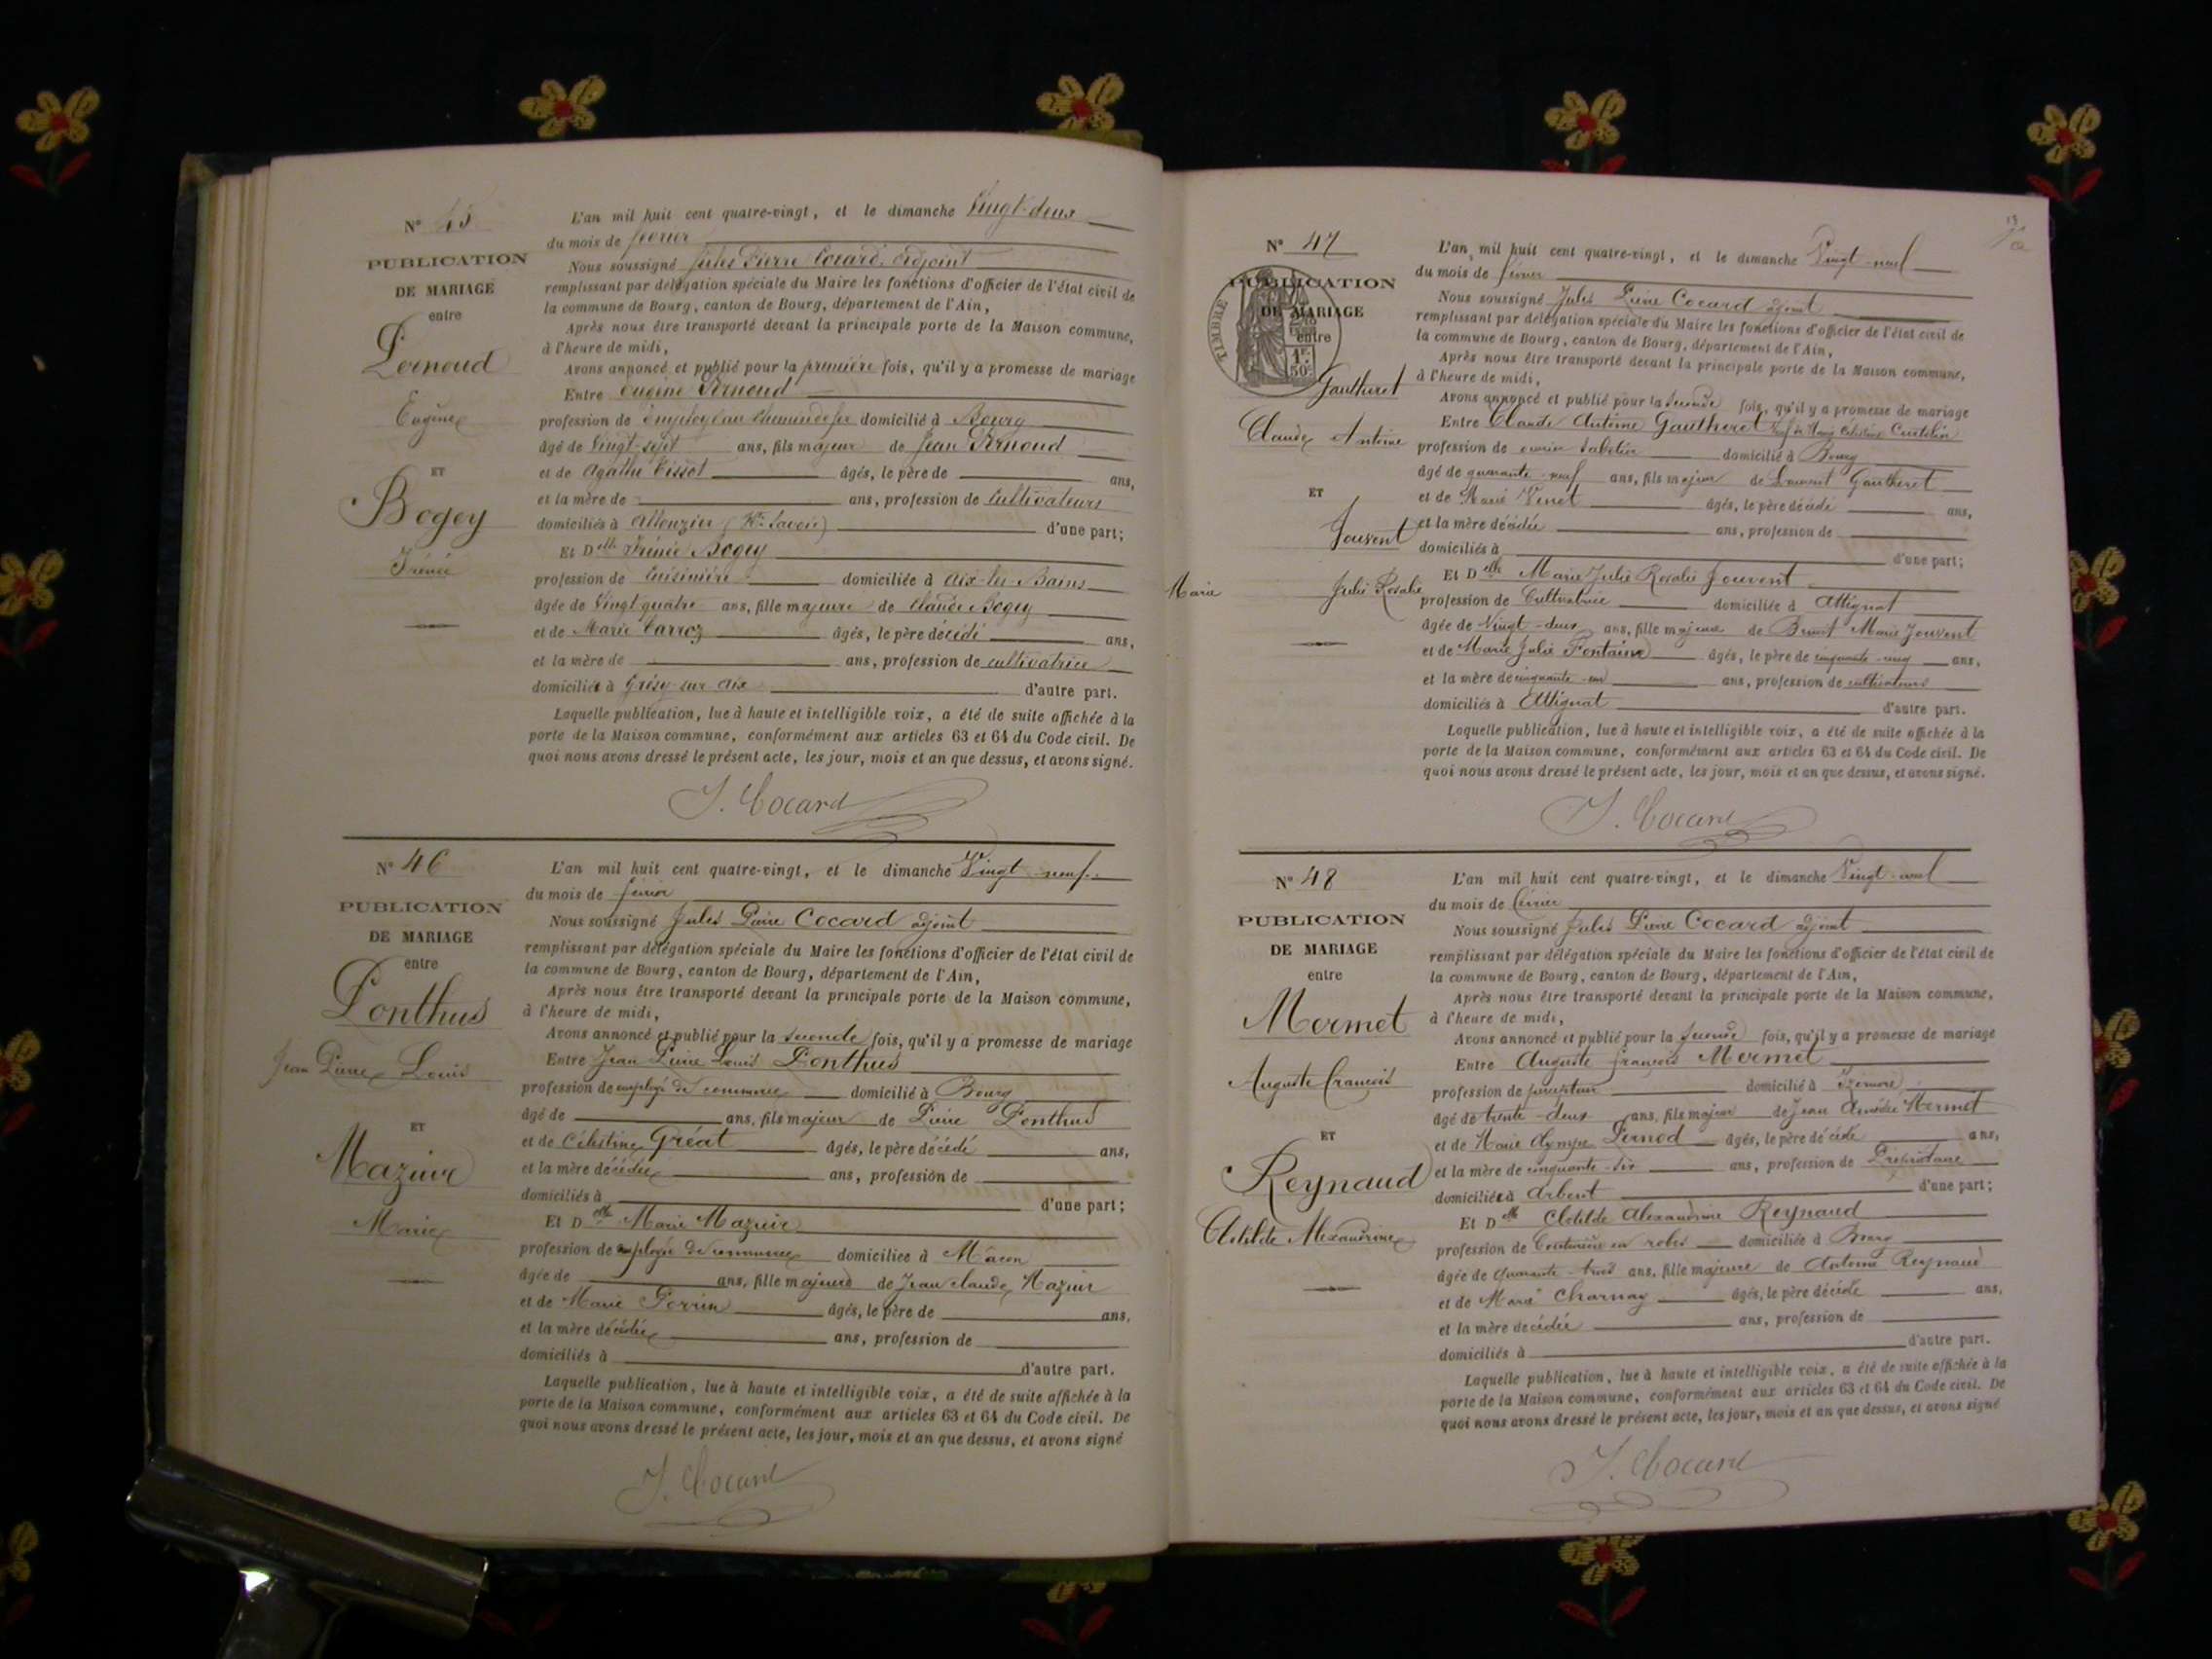 N° 45
PUBLICATION
DE MARIAGE
entre
Pernoud
Eugène
ET
Bogey
Irénée
L'an mil huit cent quatre-vingt, et le dimanche Vingt-deux
du mois de février
Nous soussigné Jules Pierre Cocard, adjoint
remplissant par délégation spéciale du Maire les fonctions d'officier de l'état civil de
la commune de Bourg, canton de Bourg, département de l'Ain,
Après nous être transporté devant la principale porte de la Maison commune,
à l'heure de midi,
Avons annoncé et publié pour la première fois, qu'il y a promesse de mariage
Entre Eugène Pernoud
profession de Employé au chemin de fer domicilié à Bourg
âgé de Vingt-sept ans, fils majeur de Jean Pernoud
et de Agathe Tissot âgés, le père de ans,
et la mère de ans, profession de Cultivateurs
domiciliés à Allonzier (Hte Savoie) d'une part;
Et Delle Irénée Bogey
profession de Cuisinière domiciliée à Aix-les-Bains
âgée de Vingt quatre ans, fille majeure de Claude Bogey
et de Marie Carroz âgés, le père décédé ans,
et la mère de ans, profession de cultivatrice
domiciliée à Grésy-sur-Aix d'autre part.
Laquelle publication, lue à haute et intelligible voix, a été de suite affichée à la
porte de la Maison commune, conformément aux articles 63 et 64 du Code civil. De
quoi nous avons dressé le présent acte, les jour, mois et an que dessus, et avons signé.
J. Cocard
N° 46
PUBLICATION
DE MARIAGE
entre
Ponthus
Jean Pierre Louis
ET
Mazuir
Marie
L'an mil huit cent quatre-vingt, et le dimanche Vingt-neuf
du mois de février
Nous soussigné Jules Pierre Cocard adjoint
remplissant par délégation spéciale du Maire les fonctions d'officier de l'état civil de
la commune de Bourg, canton de Bourg, département de l'Ain,
Après nous être transporté devant la principale porte de la Maison commune,
à l'heure de midi,
Avons annoncé et publié pour la seconde fois, qu'il y a promesse de mariage
Entre Jean Pierre Louis Ponthus
profession de employé de commerce domicilié à Bourg
âgé de ans, fils majeur de Pierre Ponthus
et de Célestine Gréat âgés, le père décédé ans,
et la mère décédée ans, profession de
domiciliés à d'une part;
Et Delle Marie Mazuir
profession de employée de commerce domiciliée à Mâcon
âgée de ans, fille majeure de Jean Claude Mazuir
et de Marie Perrin âgés, le père de ans,
et la mère décédée ans, profession de
domiciliés à d'autre part.
Laquelle publication, lue à haute et intelligible voix, a été de suite affichée à la
porte de la Maison commune, conformément aux articles 63 et 64 du Code civil. De
quoi nous avons dressé le présent acte, les jour, mois et an que dessus, et avons signé
J. Cocard
N° 47
PUBLICATION
DE MARIAGE
entre
TIMBRE
1F.
50C.
Gautheret
Claude Antoine
ET
Jouvent
Marie Julie Rosalie
L'an mil huit cent quatre-vingt, et le dimanche Vingt-neuf
du mois de février
Nous soussigné Jules Pierre Cocard adjoint
remplissant par délégation spéciale du Maire les fonctions d'officier de l'état civil de
la commune de Bourg, canton de Bourg, département de l'Ain,
Après nous être transporté devant la principale porte de la Maison commune,
à l'heure de midi,
Avons annoncé et publié pour la seconde fois, qu'il y a promesse de mariage
Entre Claude Antoine Gautheret veuf de
profession de ouvrier sabotier domicilié à Bourg
âgé de quarante-neuf ans, fils majeur de Laurent Gautheret
et de Marie Venet âgés, le père décédé ans,
et la mère décédée ans, profession de
domiciliés à d'une part;
Et Delle Marie Julie Rosalie Jouvent
profession de Cultivatrice domiciliée à Attignat
âgée de Vingt-deux ans, fille majeure de Benoit Marie Jouvent
et de Marie Julie Fontaine âgés, le père de cinquante-cinq ans,
et la mère de cinquante-un ans, profession de cultivateurs
domiciliés à Attignat d'autre part.
Laquelle publication, lue à haute et intelligible voix, a été de suite affichée à la
porte de la Maison commune, conformément aux articles 63 et 64 du Code civil. De
quoi nous avons dressé le présent acte, les jour, mois et an que dessus, et avons signé.
J. Cocard
N° 48
PUBLICATION
DE MARIAGE
entre
Mermet
Auguste François
ET
Reynaud
Clotilde Alexandrine
L'an mil huit cent quatre-vingt, et le dimanche Vingt-neuf
du mois de février
Nous soussigné Jules Pierre Cocard adjoint
remplissant par délégation spéciale du Maire les fonctions d'officier de l'état civil de
la commune de Bourg, canton de Bourg, département de l'Ain,
Après nous être transporté devant la principale porte de la Maison commune,
à l'heure de midi,
Avons annoncé et publié pour la seconde fois, qu'il y a promesse de mariage
Entre Auguste François Mermet
profession de percepteur domicilié à Izernore
âgé de trente-deux ans, fils majeur de Jean Amédée Mermet
et de Marie Olympe Pernod âgés, le père décédé ans,
et la mère de cinquante-six ans, profession de Propriétaire
domiciliée à Arbent d'une part;
Et Delle Clotilde Alexandrine Reynaud
profession de Couturière en robes domiciliée à Bourg
âgée de quarante-trois ans, fille majeure de Antoine Reynaud
et de Marie Charnay âgés, le père décédé ans,
et la mère décédée ans, profession de
domiciliés à d'autre part.
Laquelle publication, lue à haute et intelligible voix, a été de suite affichée à la
porte de la Maison commune, conformément aux articles 63 et 64 du Code civil. De
quoi nous avons dressé le présent acte, les jour, mois et an que dessus, et avons signé
J. Cocard